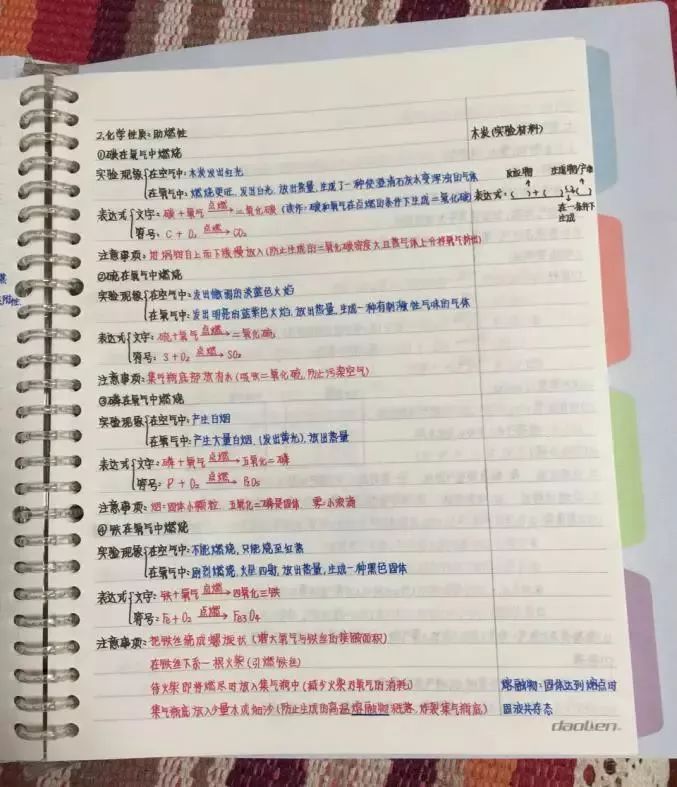 2.化学性质:助燃性
木炭(实验材料)
①碳在氧气中燃烧
实验现象{在空气中:木炭发出红光
在氧气中:燃烧更旺,发出白光,放出热量,生成了一种使澄清石灰水变浑浊的气体
反应物 生成物/产物
表达式:( )+( )→( )
在一条件下
生成
表达式{文字:碳+氧气 点燃→ 二氧化碳 (读作:碳和氧气在点燃的条件下生成二氧化碳)
符号: C + O₂ 点燃→ CO₂
注意事项:用坩埚钳自上而下缓慢放入(防止生成的二氧化碳密度大且热气体上升将氧气挤出)
②硫在氧气中燃烧
实验现象{在空气中:发出微弱的淡蓝色火焰
在氧气中:发出明亮的蓝紫色火焰,放出热量,生成一种有刺激性气味的气体
表达式{文字:硫+氧气 点燃→ 二氧化硫
符号: S+O₂ 点燃→ SO₂
注意事项:集气瓶底部放有水(吸收二氧化硫,防止污染空气)
③磷在氧气中燃烧
实验现象{在空气中:产生白烟
在氧气中:产生大量白烟,(发出黄光),放出热量
表达式{文字:磷+氧气 点燃→ 五氧化二磷
符号: P + O₂ 点燃→ P₂O₅
注意事项:烟=固体小颗粒 五氧化二磷是固体 雾:小液滴
④铁在氧气中燃烧
实验现象{在空气中:不能燃烧,只能烧至红热
在氧气中:剧烈燃烧,火星四射,放出热量,生成一种黑色固体
表达式{文字:铁+氧气 点燃→ 四氧化三铁
符号:Fe+O₂ 点燃→ Fe₃O₄
注意事项:把铁丝绕成螺旋状(增大氧气与铁丝的接触面积)
在铁丝下系一根火柴(引燃铁丝)
待火柴即将燃尽时放入集气瓶中(减少火柴对氧气的消耗)
集气瓶底放入少量水或细沙(防止生成的高温熔融物溅落,炸裂集气瓶底)
熔融物:固体达到熔点时
固液共存态
daolen